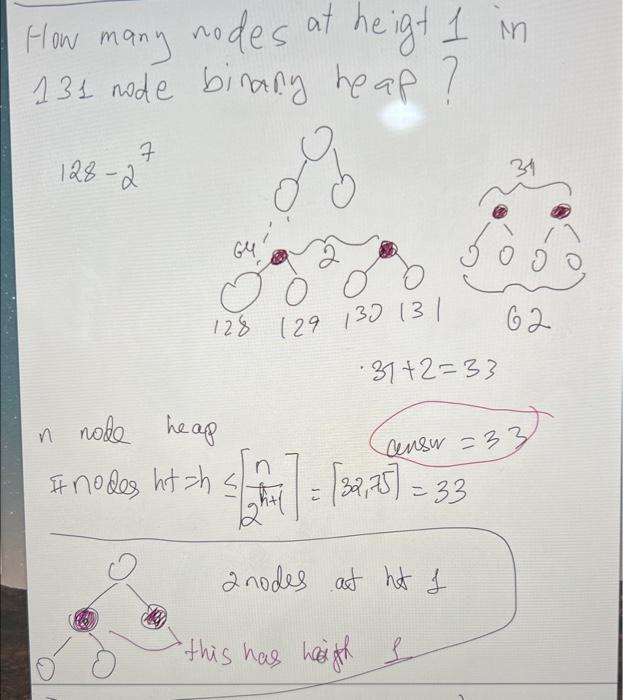 How many nodes at heigt 1 in
131 node binary heap?
128 - 2^7
31
64
2
128 129 130 131
62
31 + 2 = 33
n node heap
answ = 33
#nodes ht = h ≤ ⌈n/2^{h+1}⌉ = ⌈32,75⌉ = 33
2 nodes at ht 1
this has heigth 1